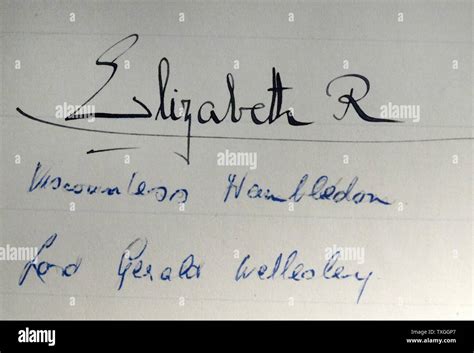 Elizabeth R
Viscountess Hambledon
Lord Gerald Wellesley
alamy
alamy
Image ID: TXGGP7
www.alamy.com